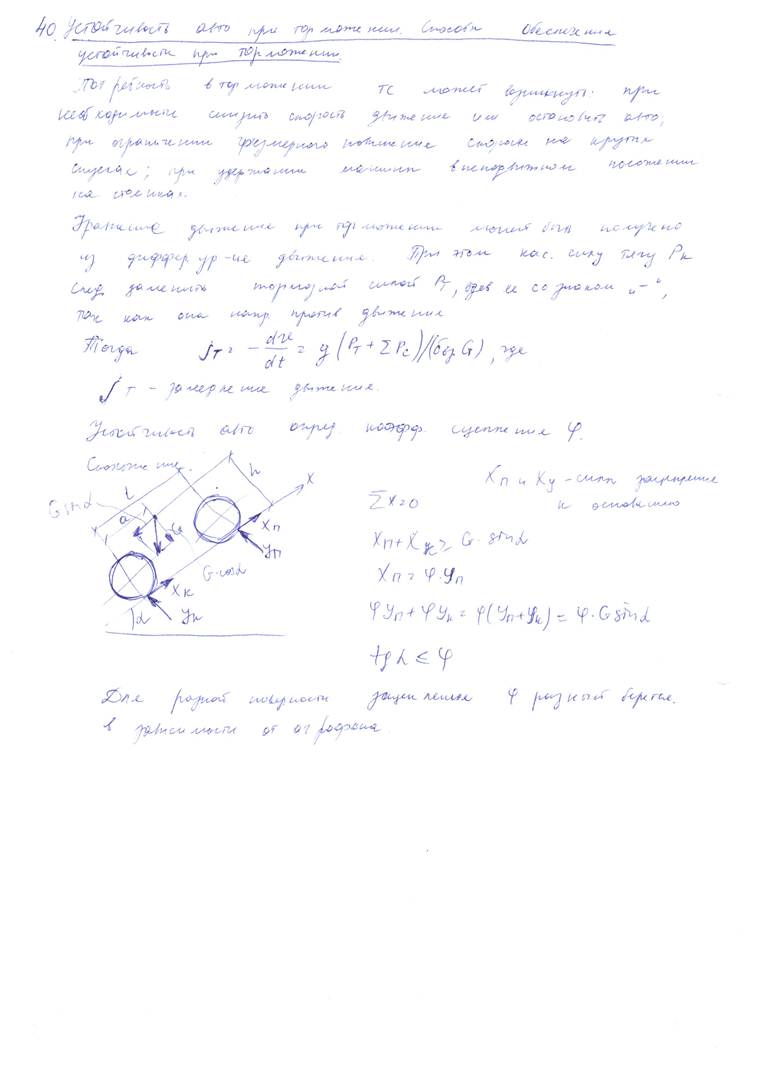 40. Устойчивость авто при торможении. Способы обеспечения
устойчивости при торможении.
Потребность в торможении ТС может возникнуть: при
необходимости снизить скорость движения или остановить авто;
при ограничении чрезмерного повышение скорости на крутых
спусках; при удержании машины в неподвижном положении
на стоянках.
движение при торможении может быть получено
из диффер. ур-ие движения. При этом кас. силу тягу Pк
след. заменить тормозной силой Pт, взяв ее со знаком „-“,
так как она напр. против движения
Тогда jт = - dv/dt = g (Pт + ΣPc)/(δвр G), где
jт - замедление движения.
Устойчивость авто опред. коэфф. сцепления φ.
Скольжение.
L h X
G sinα a G Xп Yп
G·cosα
Xк Yк
α
Xп и Xк - силы зацепления
Σx=0 к основанию
Xп+Xк = G·sinα
Xп = φ·Yп
φYп + φYк = φ(Yп+Yк) = φ·G sinα
tgα ≤ φ
Для разной поверхности зацепления φ разный берется.
в зависимости от